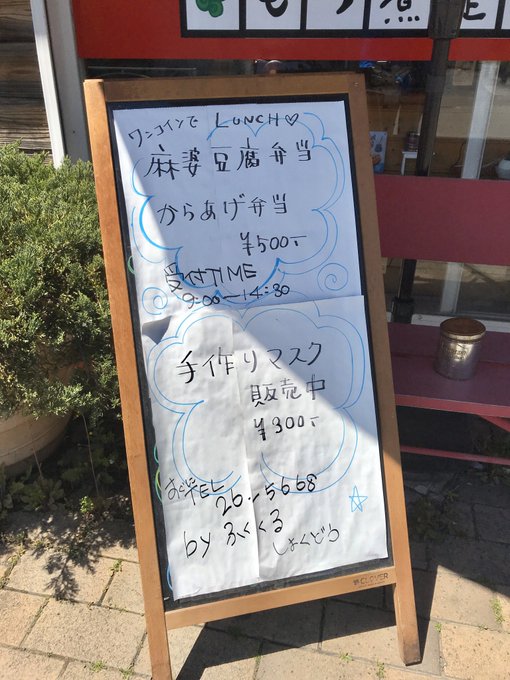 もつ煮定
ワンコインで LUNCH♡
麻婆豆腐弁当
からあげ弁当
¥500-
受付TIME
9:00〜14:30
手作りマスク
販売中
¥300-
TEL
26-5668
by ふくくる
しょくどう
CLOVER